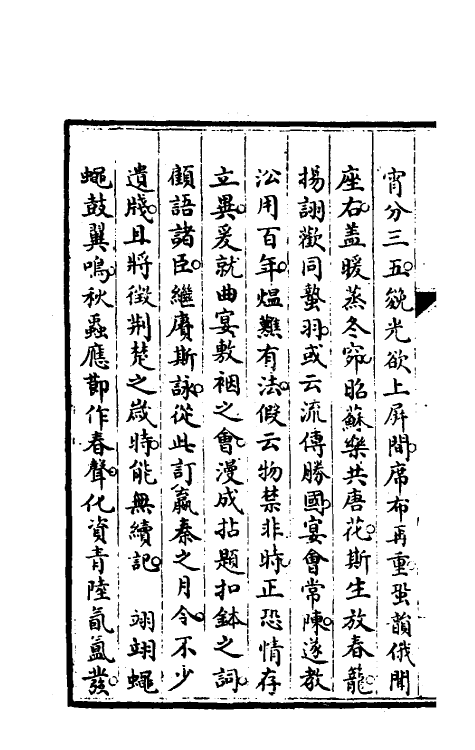 宵分三五兟光欲上屏間席布再重蛩韻俄聞
座右蓋暖蒸冬窌昭蘇樂共唐花斯生放春籠
揚詡歡同蟄羽或云流傳勝國宴會常陳遂教
㳂用百年煴㸐有法假云物禁非時正恐情存
立異爰就曲宴敷裀之會漫成拈題扣鉢之詞
顧語諸臣繼賡斯詠從此訂嬴秦之月令不少
遺牋且將徵荆楚之歲時能無續記　翊翊蠅
蠅鼓翼鳴秋蟲應節作春聲化資青陸氤氳發